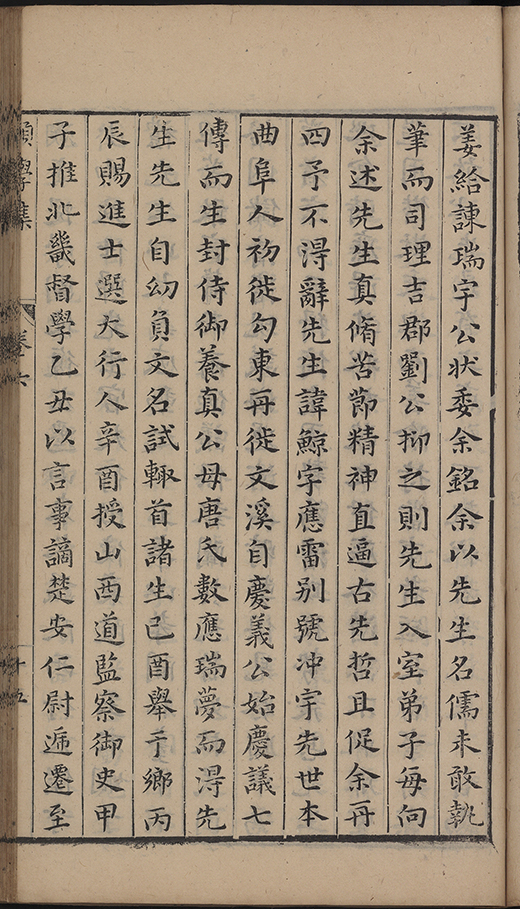 姜給諫瑞宇公狀委余銘余以先生名儒未敢執
筆而司理吉郡劉公抑之則先生入室弟子每向
余述先生真脩苦節精神直逼古先哲且促余再
四予不得辭先生諱鯨字應雷别號冲宇先世本
曲阜人初徙勾東再徙文溪自慶義公始慶議七
傳而生封侍御養真公母唐氏數應瑞夢而得先
生先生自幼負文名試輙首諸生己酉舉于鄉丙
辰賜進士選大行人辛酉授山西道監察御史甲
子推北畿督學乙丑以言事謫楚安仁尉遞遷至
學集 卷六 十五